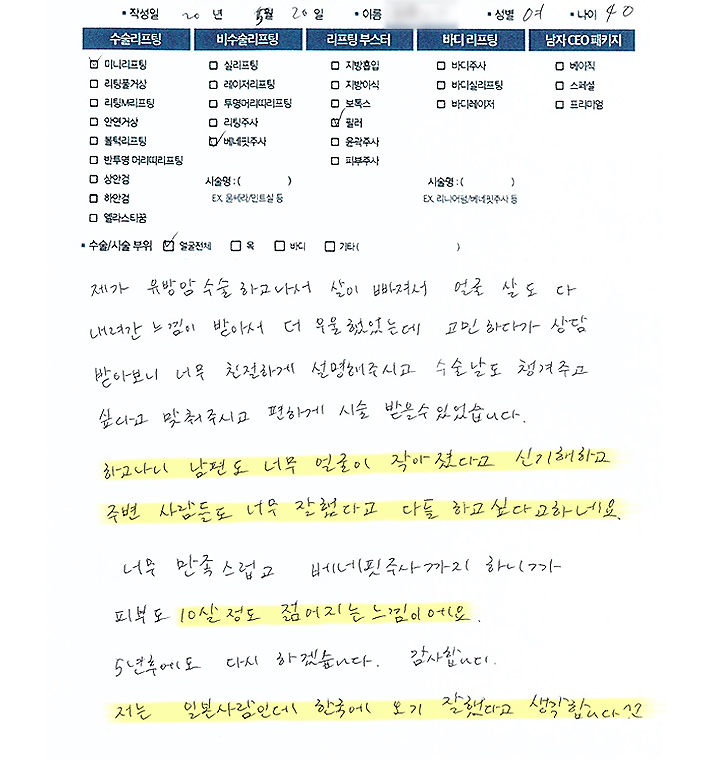 • 작성일 20 년 5월 20일 • 이름 • 성별 여 • 나이 40
수술리프팅 비수술리프팅 리프팅 부스터 바디 리프팅 남자 CEO 패키지
미니리프팅 실리프팅 지방흡입 바디주사 베이직
리팅풀거상 레이저리프팅 지방이식 바디실리프팅 스페셜
리팅M리프팅 투명머리띠리프팅 보톡스 바디레이저 프리미엄
안면거상 리팅주사 필러
볼턱리프팅 베네핏주사 윤곽주사
반투명 머리띠리프팅 피부주사
상안검 시술명 : ( ) 시술명 : ( )
하안검 EX. 울쎄라/민트실 등 EX. 리니어펌/베네핏주사 등
엘라스티꿈
• 수술/시술 부위 얼굴전체 목 바디 기타 ( )
제가 유방암 수술 하고나서 살이 빠져서 얼굴 살도 다
내려간 느낌이 받아서 더 우울했었는데 고민하다가 상담
받아보니 너무 친절하게 설명해주시고 수술날도 청겨주고
싶다고 맞춰주시고 편하게 시술 받을수있었습니다.
하고나니 남편도 너무 얼굴이 작아졌다고 신기해하고
주변 사람들도 너무 잘했다고 다들 하고싶다고하네요.
너무 만족스럽고 베네핏주사까지 하니까
피부도 10살정도 젊어지는느낌이에요.
5년후에도 다시 하겠습니다. 감사합니다.
저는 일본사람인데 한국에 오기 잘했다고 생각합니다